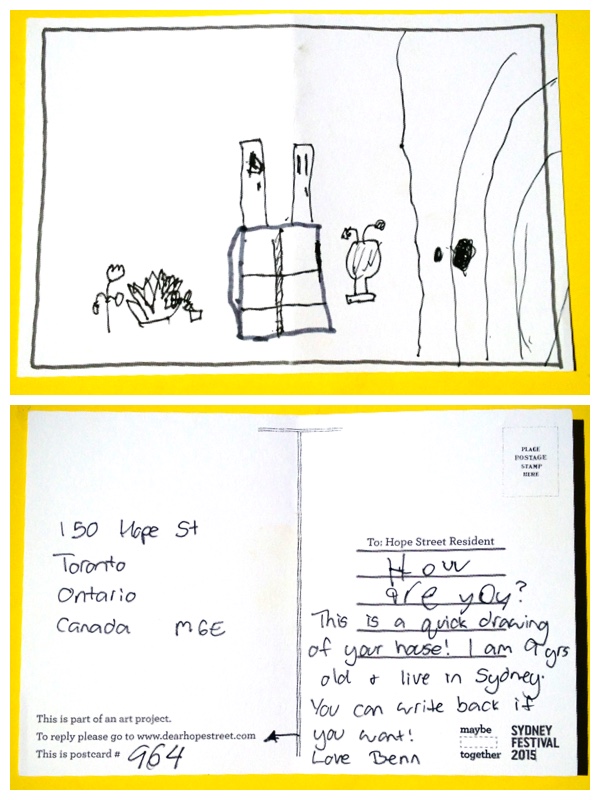 150 Hope St
Toronto
Ontario
Canada M6E
This is part of an art project.
To reply please go to www.dearhopestreet.com
This is postcard # 964
PLACE
POSTAGE
STAMP
HERE
To: Hope Street Resident
How
are you?
This is a quick drawing
of your house! I am 9 yrs
old & live in Sydney.
You can write back if
you want!
Love Benn
maybe
together
SYDNEY
FESTIVAL
2015